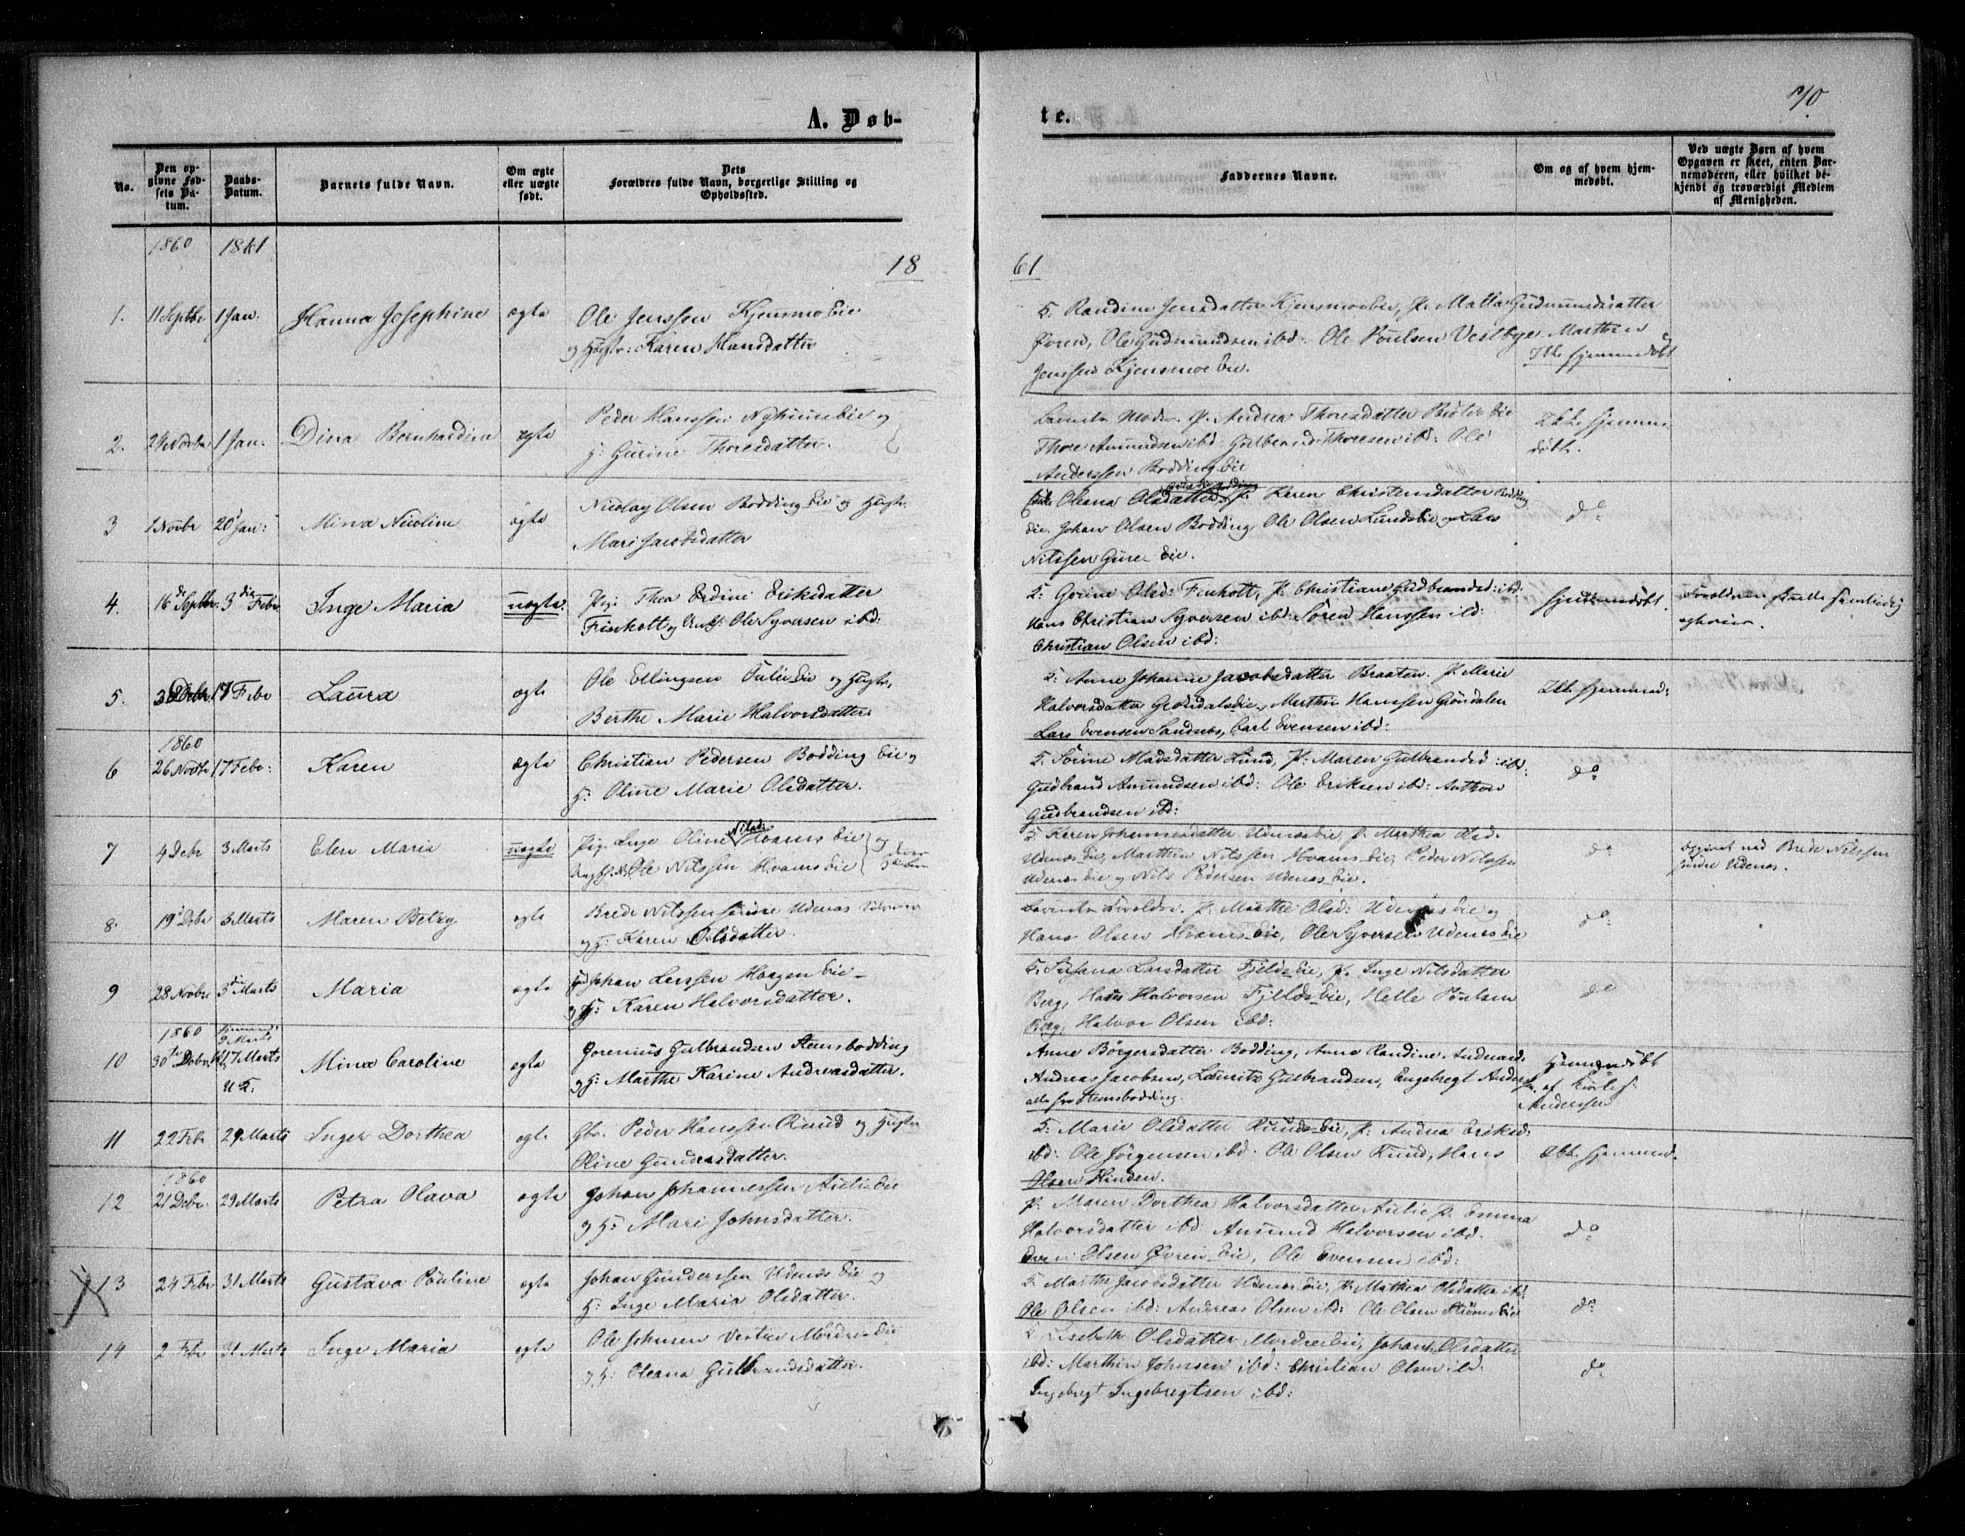 70
A. Døb-
te.
No.
Den op-
givne Fød-
sels Da-
tum.
Daabs-
Datum.
Barnets fulde Navn.
Om ægte
eller uægte
født.
Dets
Forældres fulde Navn, borgerlige Stilling og
Opholdssted.
Faddernes Navne.
Om og af hvem hjem-
medøbt.
Ved uægte Børn af hvem
Opgaven er skeet, enten Bar-
nemoderen, eller hvilket be-
kjendt og troværdigt Medlem
af Menigheden.
1860 1861
18 61
1. 11 Septbr 1 Jan. Hanna Josephine ægte
Ole Jenssen Kjensmoeie
og Hustr: Karen Hansdatter
Randine Jensdatter Kjensmoeie, P. Gudmundsdatter
Øren, Ole Gudmundsen ibd: Ole Poulsen Vestbye Marthin
Jenssen Kjensmoe Eie.
Ikke hjemmedøbt
2. 1 Jan. Dina Bernhardina ægte
Peder Hanssen Eie og
H: Gurine Thoresdatter.
Moder P. Andrea Thoresdatter Eie
Thore Amundsen ibd: Gulbrand Thoresen ibd: Ole
Anderssen Bodding Eie
Ikke hjemme-
døbt.
3 1 Novbr 20 Jan: Mina Nicoline ægte
Nicolay Olsen Bodding Eie og Hustr.
Mari Jacobsdatter
Oleana Olsdatter P. Karen Christensdatter Bodding
Eie, Johan Olsen Bodding, Ole Olsen Lundseie og Lars
Nilssen Eie.
do
4. 16 de Septbr. 3 die Febr. Inge Maria uægte.
Pige Thea Erdine Eriksdatter
Finholt og Ungk. Ole Syversen ibd:
Gorine Olsd: Finholt, P. Christiane Gudbrandsd: ibd:
Hans Christian Syversen ibd: Søren Hanssen ibd:
Christian Olsen ibd:
Hjemmedøbt.
5. Debr 17 Febr Laura ægte
Ole Ellingsen Julseie og Hustr,
Berthe Marie Halvorsdatter
Anne Johanne Jacobsdatter Braaten. P. Marie
Halvorsdatter Grøndalseie, Marthin Hanssen Grøndalen
Lars Evensen Sandnes, Carl Evensen ibd:
Ikke hjemmed:
1860
6 26 Novbr 17 Febr: Karen ægte
Christian Pedersen Bodding Eie og
H: Oline Marie Olsdatter.
Sørine Madsdatter Lund, P: Maren Gulbrandsd: ibd:
Gudbrand Amundsen ibd: Ole Eriksen ibd: Anthon
Gudbrandsen ibd:
do
7 4 Debr 3 Marts Elen Maria uægte
Pige Inge Oline Nilsd: Hvams Eie og
Ole Nilssen Hvams Eie
Karen Johannesdatter Udenæseie, P. Marthea Olsd.
Udenæs Eie, Marthin Nilssen Hvams Eie, Peder Nilssen
Udenæs Eie og Nils Pedersen Udenæs Eie.
do
Opgivet ved Brede Nilssen
søndre Udenæs.
8. 19 Debr 3 Marts Maren Betzy ægte
Brede Nilssen søndre Udenæs
og H: Karen Olsdatter.
P. Marthe Olsd: Udenæs Eie og
Hans Olsen Hvams Eie, Ole Syversen Udenæs Eie
do
9 28 Novbr 3 die Marts Maria ægte
Johan Larssen Haagen Eie
og H: Karen Halvorsdatter.
Susana Larsdatter Fjelds Eie, P. Inge Nilsdatter
Berg, Hans Halvorsen Fjelds Eie, Helle Poulsen
Berg, Halvor Olsen ibd:
do
1860
10 30 Debr. 17 Marts Mina Caroline ægte
Gorenius Gulbrandsen Stensbodding
og H: Marthe Karine Andreasdatter.
Anne Børgersdatter Bodding, Anne Randine Andreasd:
Andreas Jacobsen, Lauritz Gulbrandsen, Engebregt Anders
alle fra Stensbodding.
Hjemmedøbt
af
Anderssen
11 22 Febr 29 Marts Inger Dorthea ægte
Gbr. Peder Hanssen Rund og Hustr
Oline Gundersdatter.
Marie Olsdatter Runds Eie, P: Andrea Eriksd:
ibd: Ole Jørgensen ibd. Ole Olsen Rund, Hans
Olsen Hinden.
Ikke hjemmed.
1860
12 21 Debr. 29 Marts Petra Olava ægte
Johan Johannessen Aulieie
og H: Mari Johnsdatter.
P. Maren Dorthea Halvorsdatter Aulie P. Emma
Halvorsdatter ibd Amund Halvorsen ibd.
Even Olsen Øvren Eie, Ole Evensen ibd:
do
13 24 Febr 31 Marts Gustava Pouline ægte
Johan Gunderssen Udenæs Eie og
H: Inge Maria Olsdatter.
Marthe Jacobsdatter Udenæs Eie, P. Mathea Olsdatter ibd:
Ole Olsen ibd: Andreas Olsen ibd: Ole Olsen Strøms Eie
do
14 2 Febr 31 Marts Inge Maria ægte
Ole Johnsen Mordreeie
og H: Oleana Gulbrandsdatter.
Lisebeth Olsdatter Mordreeie, Johanne Olsdatter
ibd: Marthin Johnsen ibd: Christian Olsen ibd.
Ingebregt Ingebregtsen ibd:
do